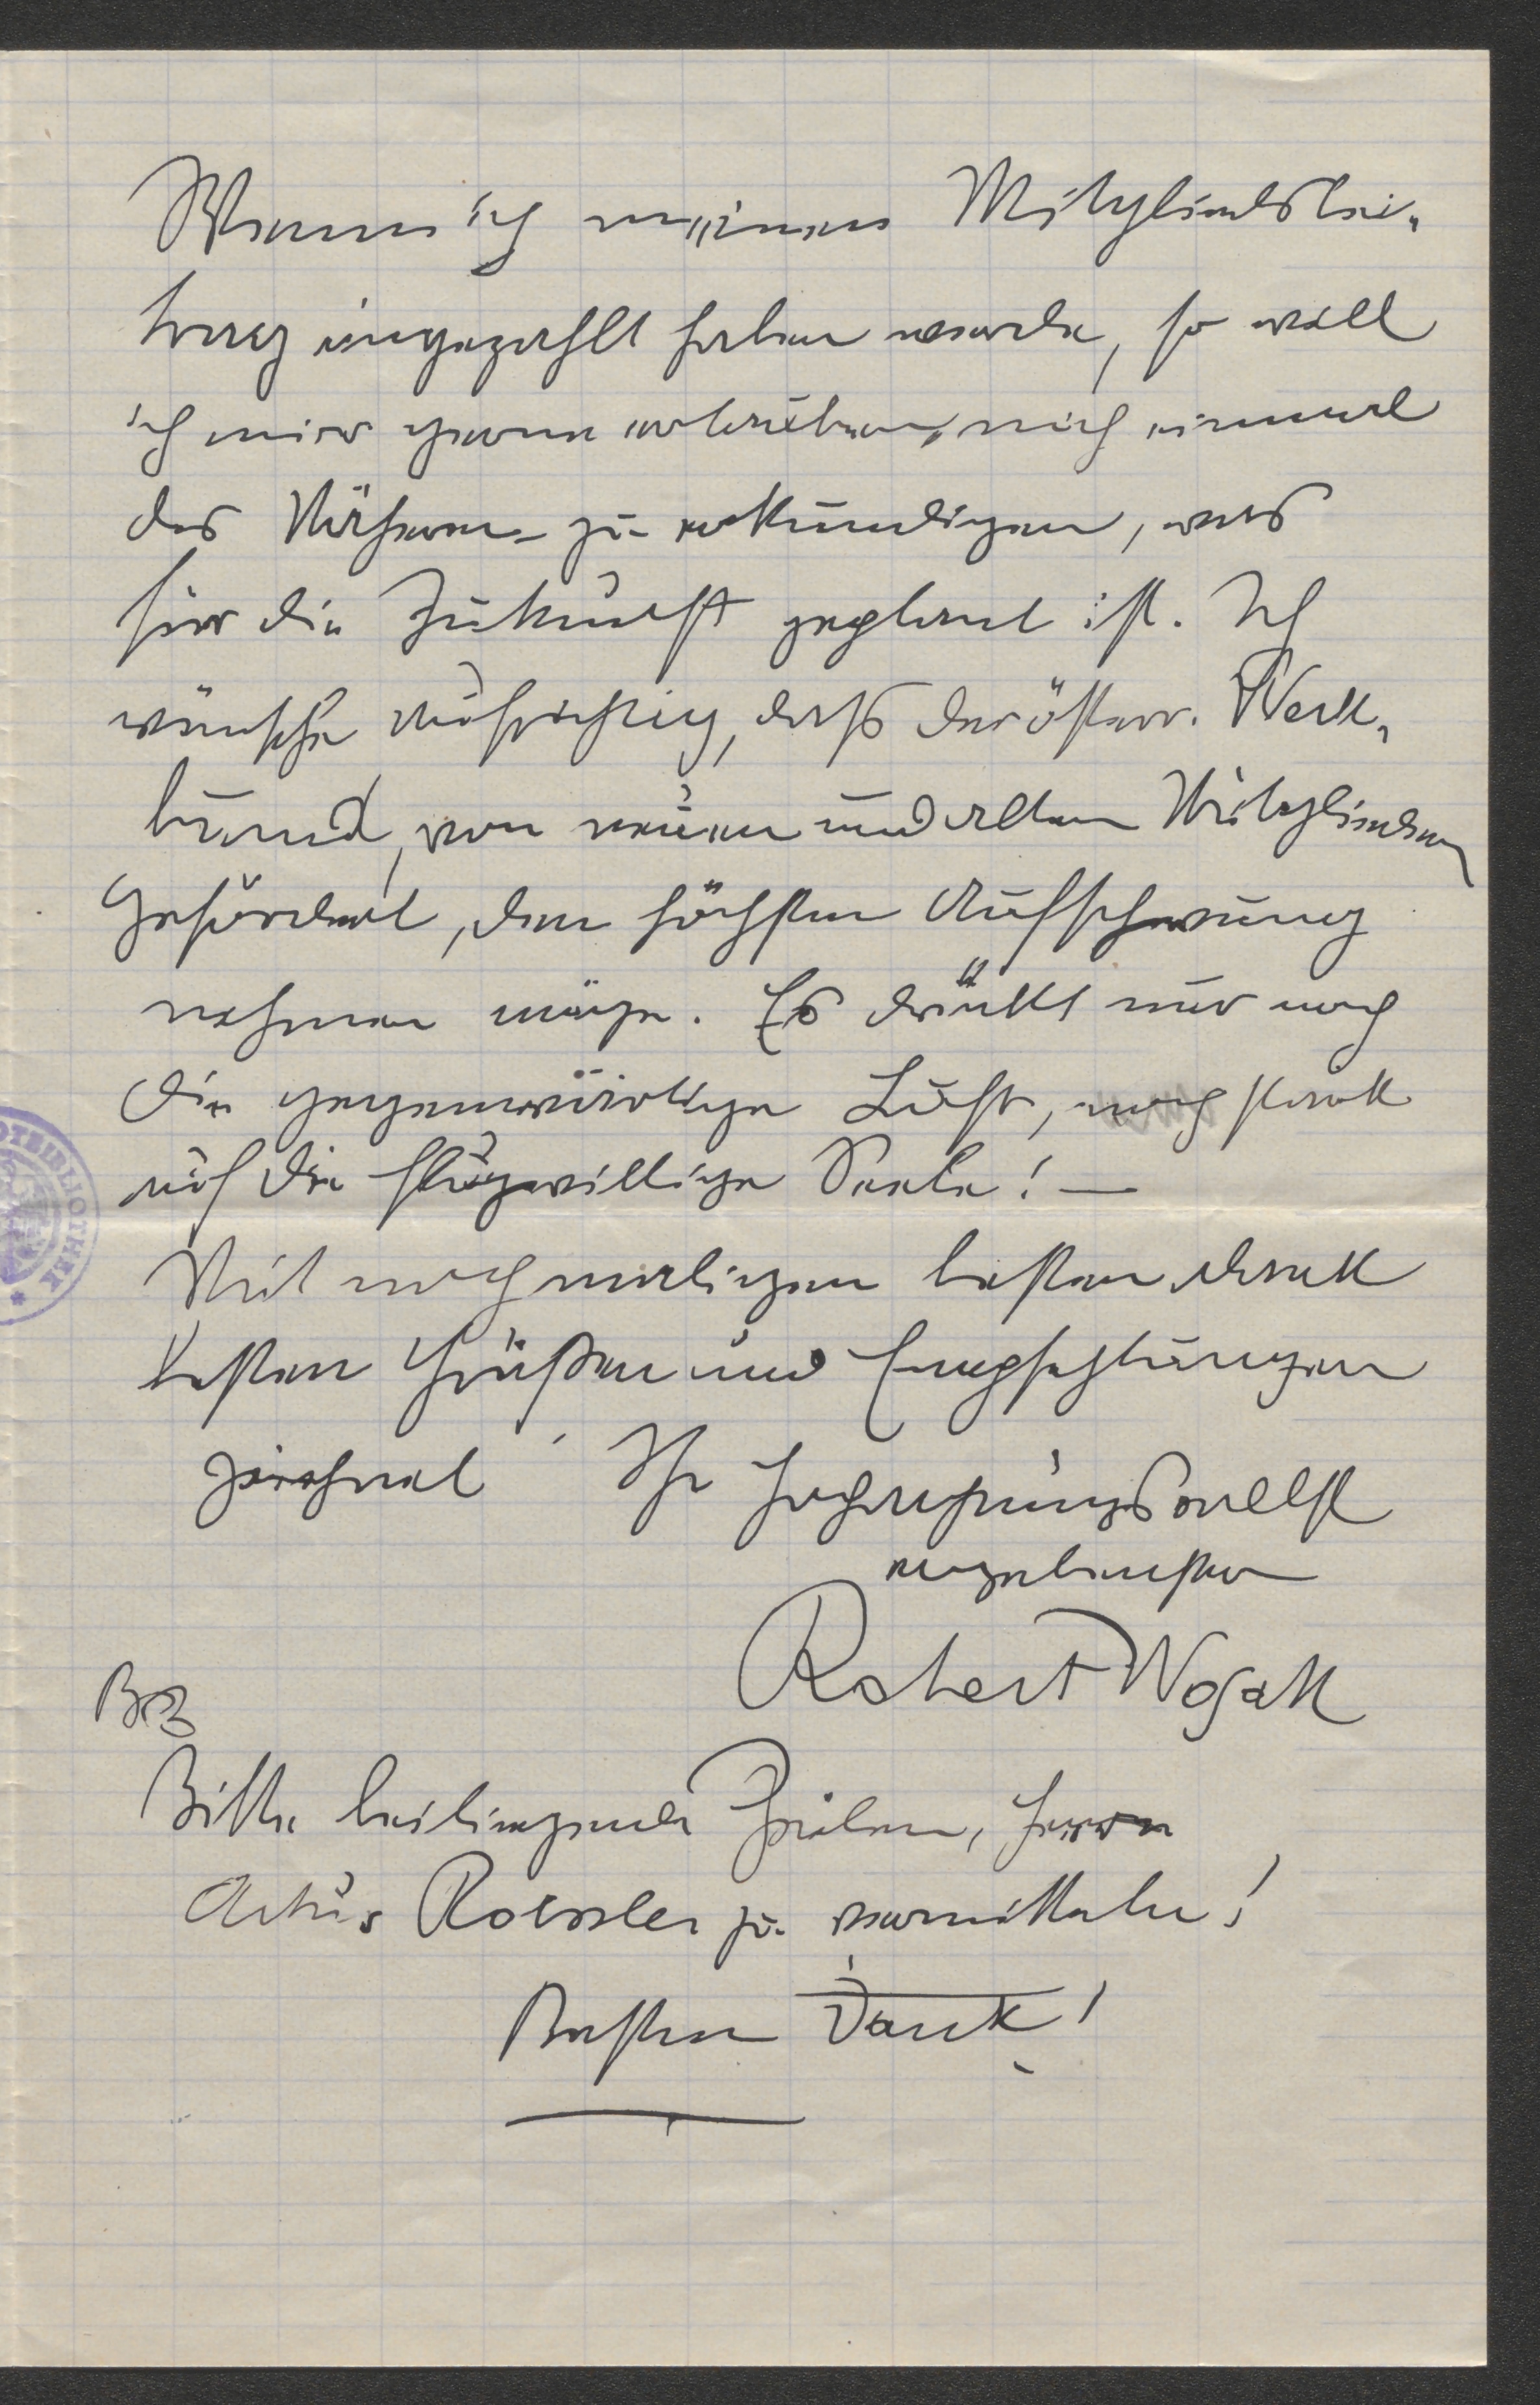 Wenn ich meinen Mitgliedsbei-
trag eingezahlt haben werde, so will
ich mir gerne erlauben, mich einmal
des Näheren zu erkundigen, was
für die Zukunft geplant ist. Ich
wünsche aufrichtig, daß der österr. Werk-
bund, von neuen und alten Mitgliedern
gefördert, den höchsten Aufschwung
nehmen möge. Es drückt nur noch
die gegenwärtige Luft, noch stark
auf die flugwillige Seele! —
Mit nochmaligem besten Dank
besten Grüßen und Empfehlungen
zeichnet Ihr hochachtungsvollst
ergebenster
Robert Wosak
Bitte beiliegende Zeilen, Herrn
Artur Roessler zu vermitteln!
Besten Dank!
BIBLIOTHEK